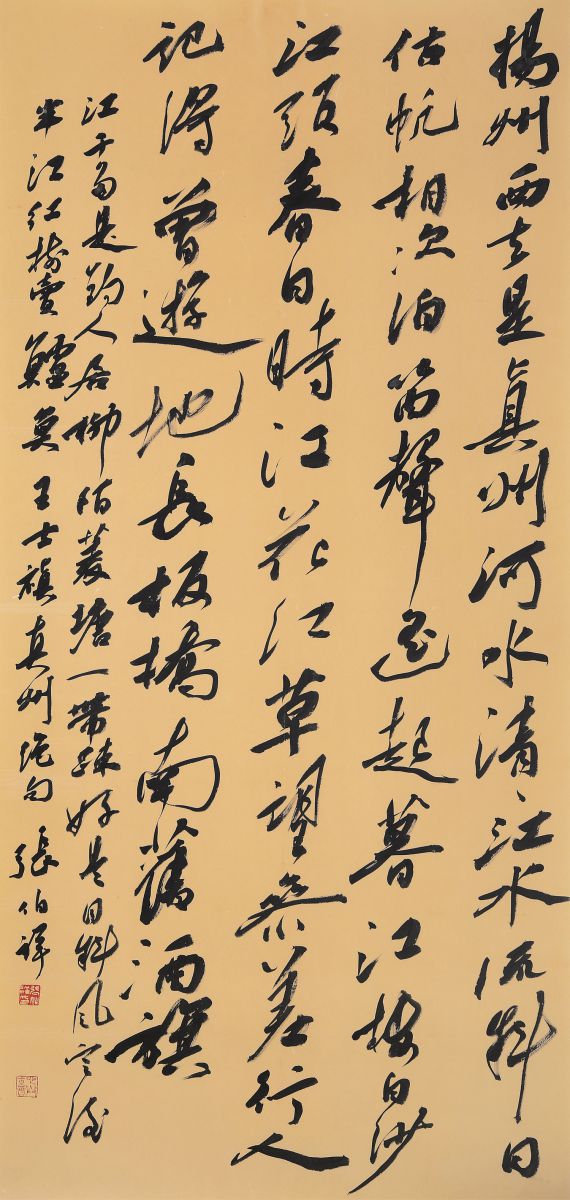 揚州西去是真州河水清〻江水流斜日
估帆相次泊笛聲遙起暮江樓白沙
江頭春日時江花江草望參差行人
記得曾遊地長板橋南舊酒旗
江干多是釣人居柳陌菱塘一帶疎好是日斜風定後
半江紅樹賣鱸魚 王士禛真州絕句 張伯祥